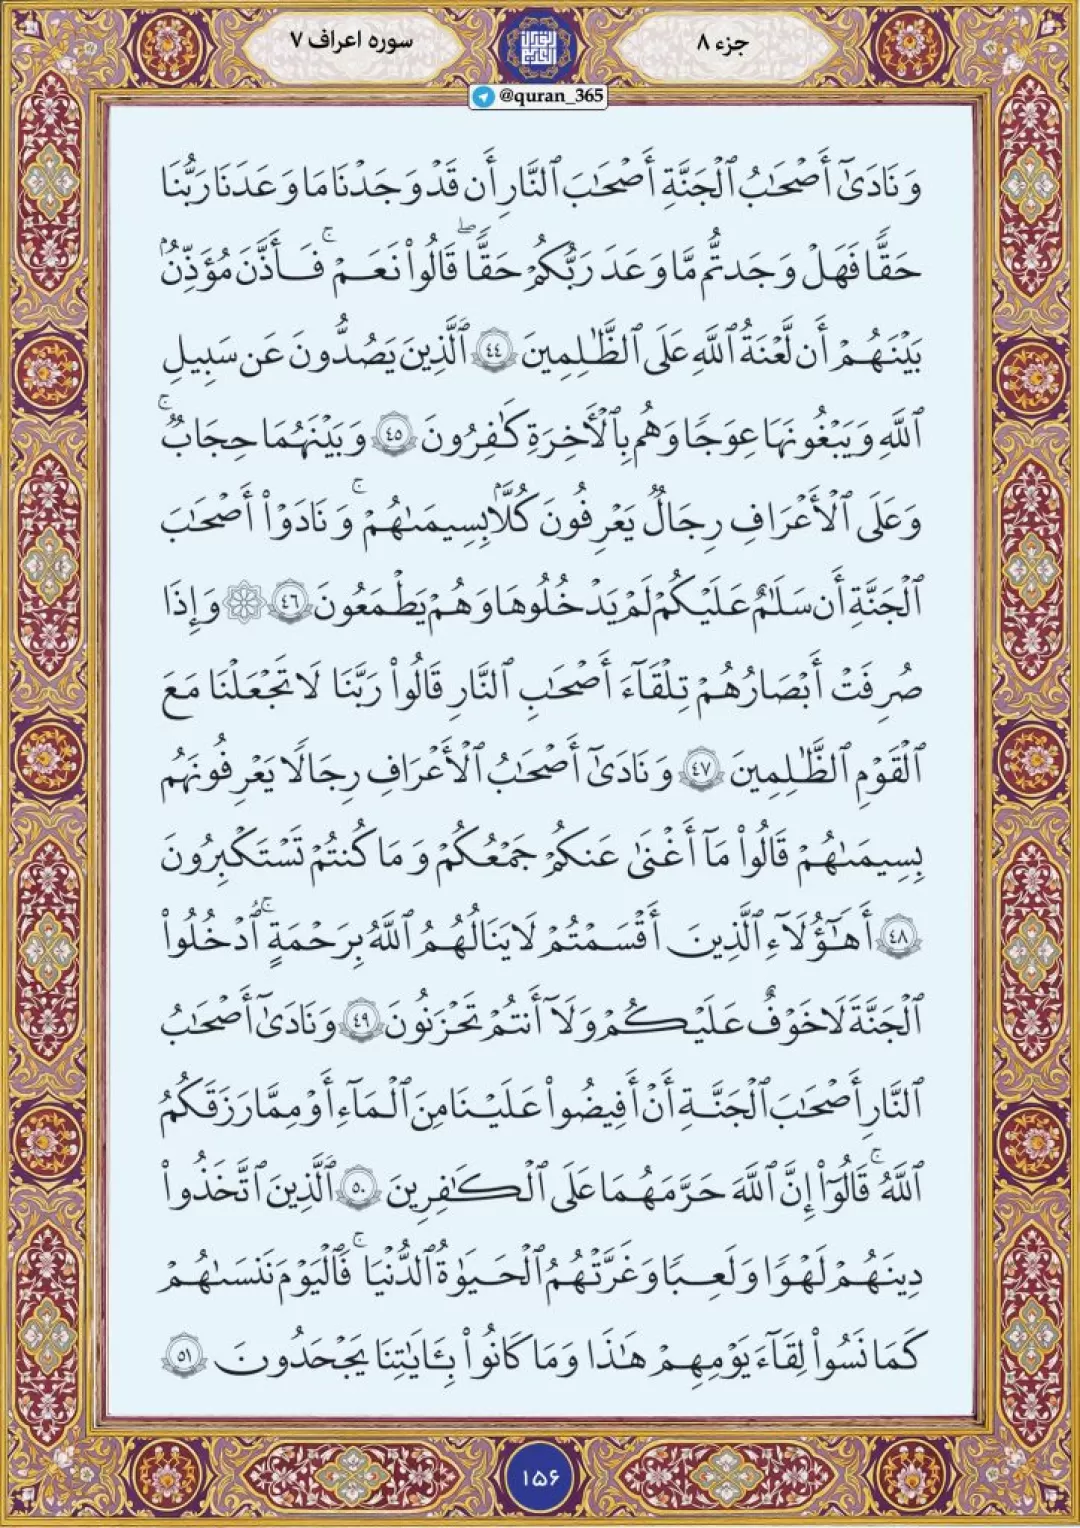 جزء ۸
سوره اعراف ۷
@quran_365
وَنَادَىٰٓ أَصْحَٰبُ ٱلْجَنَّةِ أَصْحَٰبَ ٱلنَّارِ أَن قَدْ وَجَدْنَا مَا وَعَدَنَا رَبُّنَا
حَقًّا فَهَلْ وَجَدتُّم مَّا وَعَدَ رَبُّكُمْ حَقًّا ۖ قَالُوا۟ نَعَمْ ۚ فَأَذَّنَ مُؤَذِّنٌۢ
بَيْنَهُمْ أَن لَّعْنَةُ ٱللَّهِ عَلَى ٱلظَّٰلِمِينَ ٤٤ ٱلَّذِينَ يَصُدُّونَ عَن سَبِيلِ
ٱللَّهِ وَيَبْغُونَهَا عِوَجًا وَهُم بِٱلْأَخِرَةِ كَٰفِرُونَ ٤٥ وَبَيْنَهُمَا حِجَابٌ ۚ
وَعَلَى ٱلْأَعْرَافِ رِجَالٌ يَعْرِفُونَ كُلًّۢا بِسِيمَىٰهُمْ ۚ وَنَادَوْا۟ أَصْحَٰبَ
ٱلْجَنَّةِ أَن سَلَٰمٌ عَلَيْكُمْ لَمْ يَدْخُلُوهَا وَهُمْ يَطْمَعُونَ ٤٦ ۞ وَإِذَا
صُرِفَتْ أَبْصَٰرُهُمْ تِلْقَآءَ أَصْحَٰبِ ٱلنَّارِ قَالُوا۟ رَبَّنَا لَا تَجْعَلْنَا مَعَ
ٱلْقَوْمِ ٱلظَّٰلِمِينَ ٤٧ وَنَادَىٰٓ أَصْحَٰبُ ٱلْأَعْرَافِ رِجَالًا يَعْرِفُونَهُم
بِسِيمَىٰهُمْ قَالُوا۟ مَآ أَغْنَىٰ عَنكُمْ جَمْعُكُمْ وَمَا كُنتُمْ تَسْتَكْبِرُونَ
٤٨ أَهَٰٓؤُلَآءِ ٱلَّذِينَ أَقْسَمْتُمْ لَا يَنَالُهُمُ ٱللَّهُ بِرَحْمَةٍ ۚ ٱدْخُلُوا۟
ٱلْجَنَّةَ لَا خَوْفٌ عَلَيْكُمْ وَلَآ أَنتُمْ تَحْزَنُونَ ٤٩ وَنَادَىٰٓ أَصْحَٰبُ
ٱلنَّارِ أَصْحَٰبَ ٱلْجَنَّةِ أَنْ أَفِيضُوا۟ عَلَيْنَا مِنَ ٱلْمَآءِ أَوْ مِمَّا رَزَقَكُمُ
ٱللَّهُ ۚ قَالُوٓا۟ إِنَّ ٱللَّهَ حَرَّمَهُمَا عَلَى ٱلْكَٰفِرِينَ ٥٠ ٱلَّذِينَ ٱتَّخَذُوا۟
دِينَهُمْ لَهْوًا وَلَعِبًا وَغَرَّتْهُمُ ٱلْحَيَوٰةُ ٱلدُّنْيَا ۚ فَٱلْيَوْمَ نَنسَىٰهُمْ
كَمَا نَسُوا۟ لِقَآءَ يَوْمِهِمْ هَٰذَا وَمَا كَانُوا۟ بِـَٔايَٰتِنَا يَجْحَدُونَ ٥١
۱۵۶